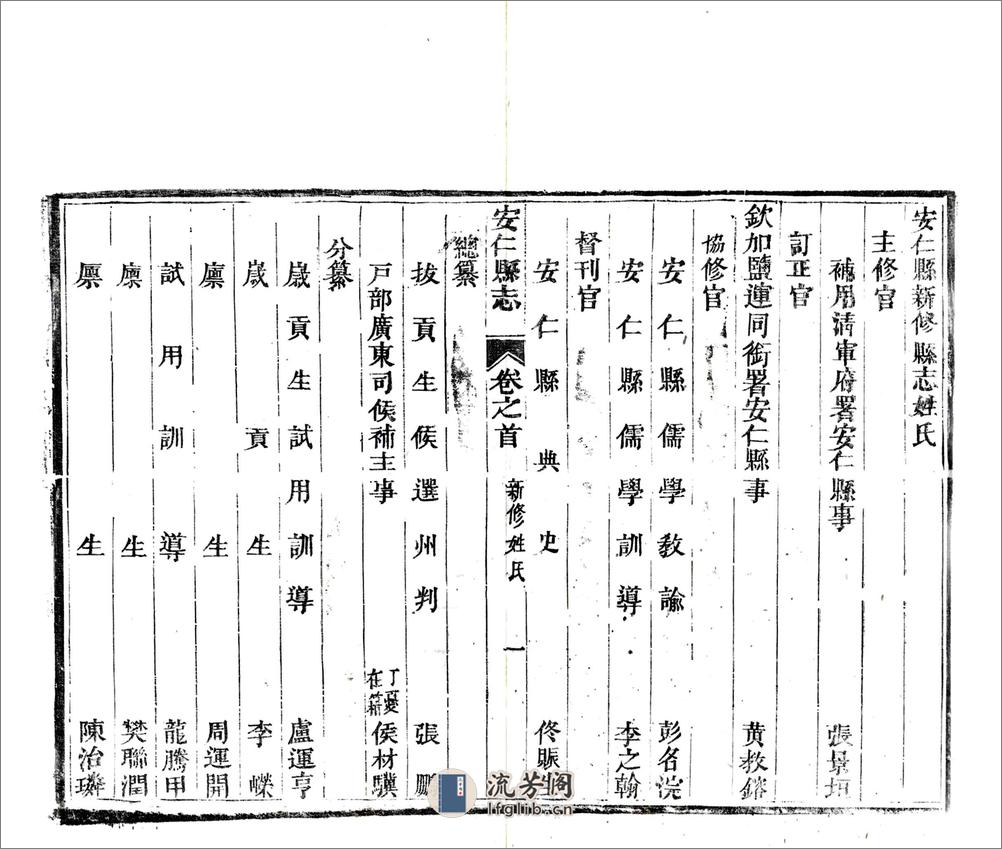 安仁縣新修縣志姓氏
主修官
補用清軍府署安仁縣事 張景垣
訂正官
欽加鹽運同銜署安仁縣事 黃教鎔
協修官
安仁縣儒學教諭 彭名浣
安仁縣儒學訓導 李之翰
督刊官
安仁縣典史 佟賬
安仁縣志 卷之首 新修姓氏 一
總纂
拔貢生候選州判 張鵬
戶部廣東司候補主事 丁憂在籍 侯材驥
分纂
歲貢生試用訓導 盧運亨
歲貢生 李嶸
廩生 周運開
試用訓導 龍騰甲
廩生 樊聯潤
廩生 陳治璘
流芳閣
lfglib.cn